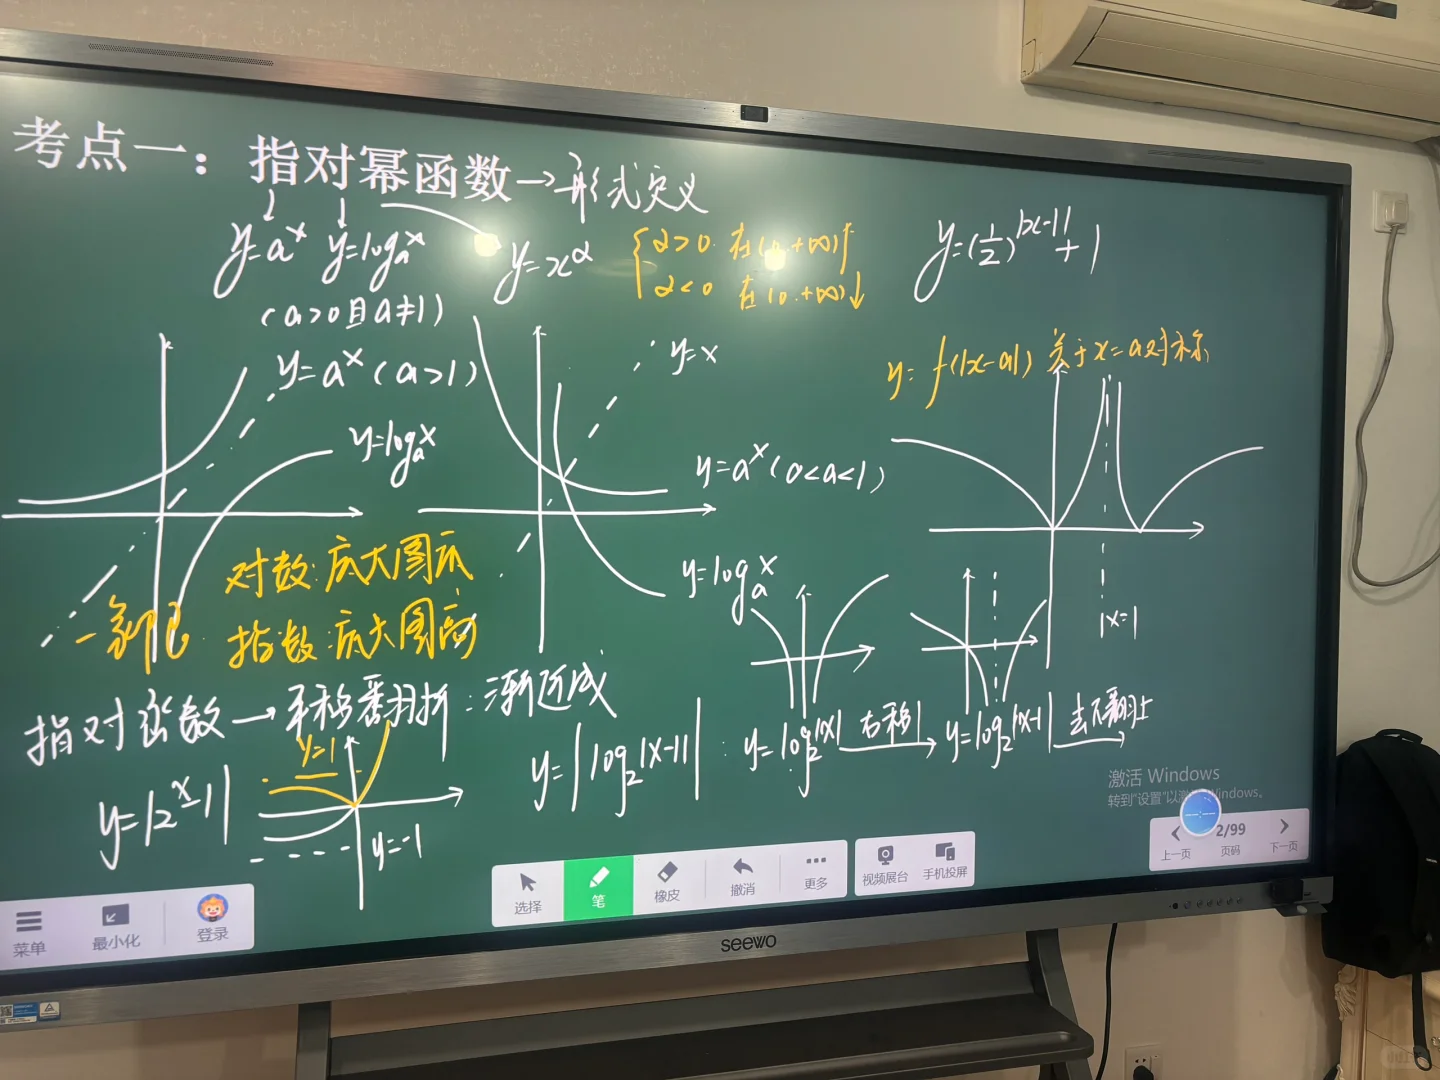 考点一：指对幂函数→形式定义
y=aˣ y=logₐx y=x^α
(a>0且a≠1)
{α>0 在(0.+∞)↑
α<0 在(0.+∞)↓
y=(1/2)^|x-1|+1
y=aˣ(a>1)
y=logₐx
y=x
y=aˣ(0<a<1)
y=logₐx
y=f(|x-a|) 关于x=a对称
x=1
对数:底大图
指数:底大图高
指对函数→平移翻折:渐近线
y=|2ˣ-1|
y=1
y=-1
y=|log₂|x-1|| : y=log₂|x| 右移1→ y=log₂|x-1| 去下翻上→
激活 Windows
转到"设置"以激活 Windows。
菜单
最小化
登录
选择
笔
橡皮
撤消
更多
视频展台
手机投屏
上一页
2/99
页码
下一页
seewo